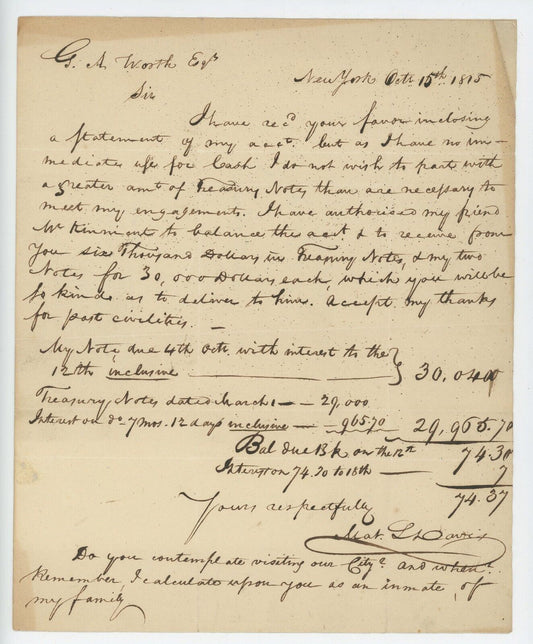 G. A Worth Esqr
New York Octr 15th 1815
Sir
I have recd your favor inclosing
a statement of my acct. but as I have no im-
mediate use for Cash I do not wish to part with
a greater amt of Treasury Notes than are necessary to
meet my engagements. I have authorised my friend
Mr to balance the acct & to receive from
you six Thousand Dollars in Treasury Notes, & my two
Notes for 30,000 Dollars each, which you will be
so kind as to deliver to him. Accept my thanks
for past civilities. —
My Note due 4th Octr with interest to the
12th inclusive — 30,040
Treasury Notes dated March 1 — 29,000
Interest on do 7 mos. 12 days inclusive — 965.70 29,965.70
Bal due Bk on the 12th 74.30
Interest on 74.30 to 15th — 7
74.37
Yours respectfully
Mat. L Davis
Do you contemplate visiting our City? and when?
Remember, I calculate upon you as an inmate, of
my family